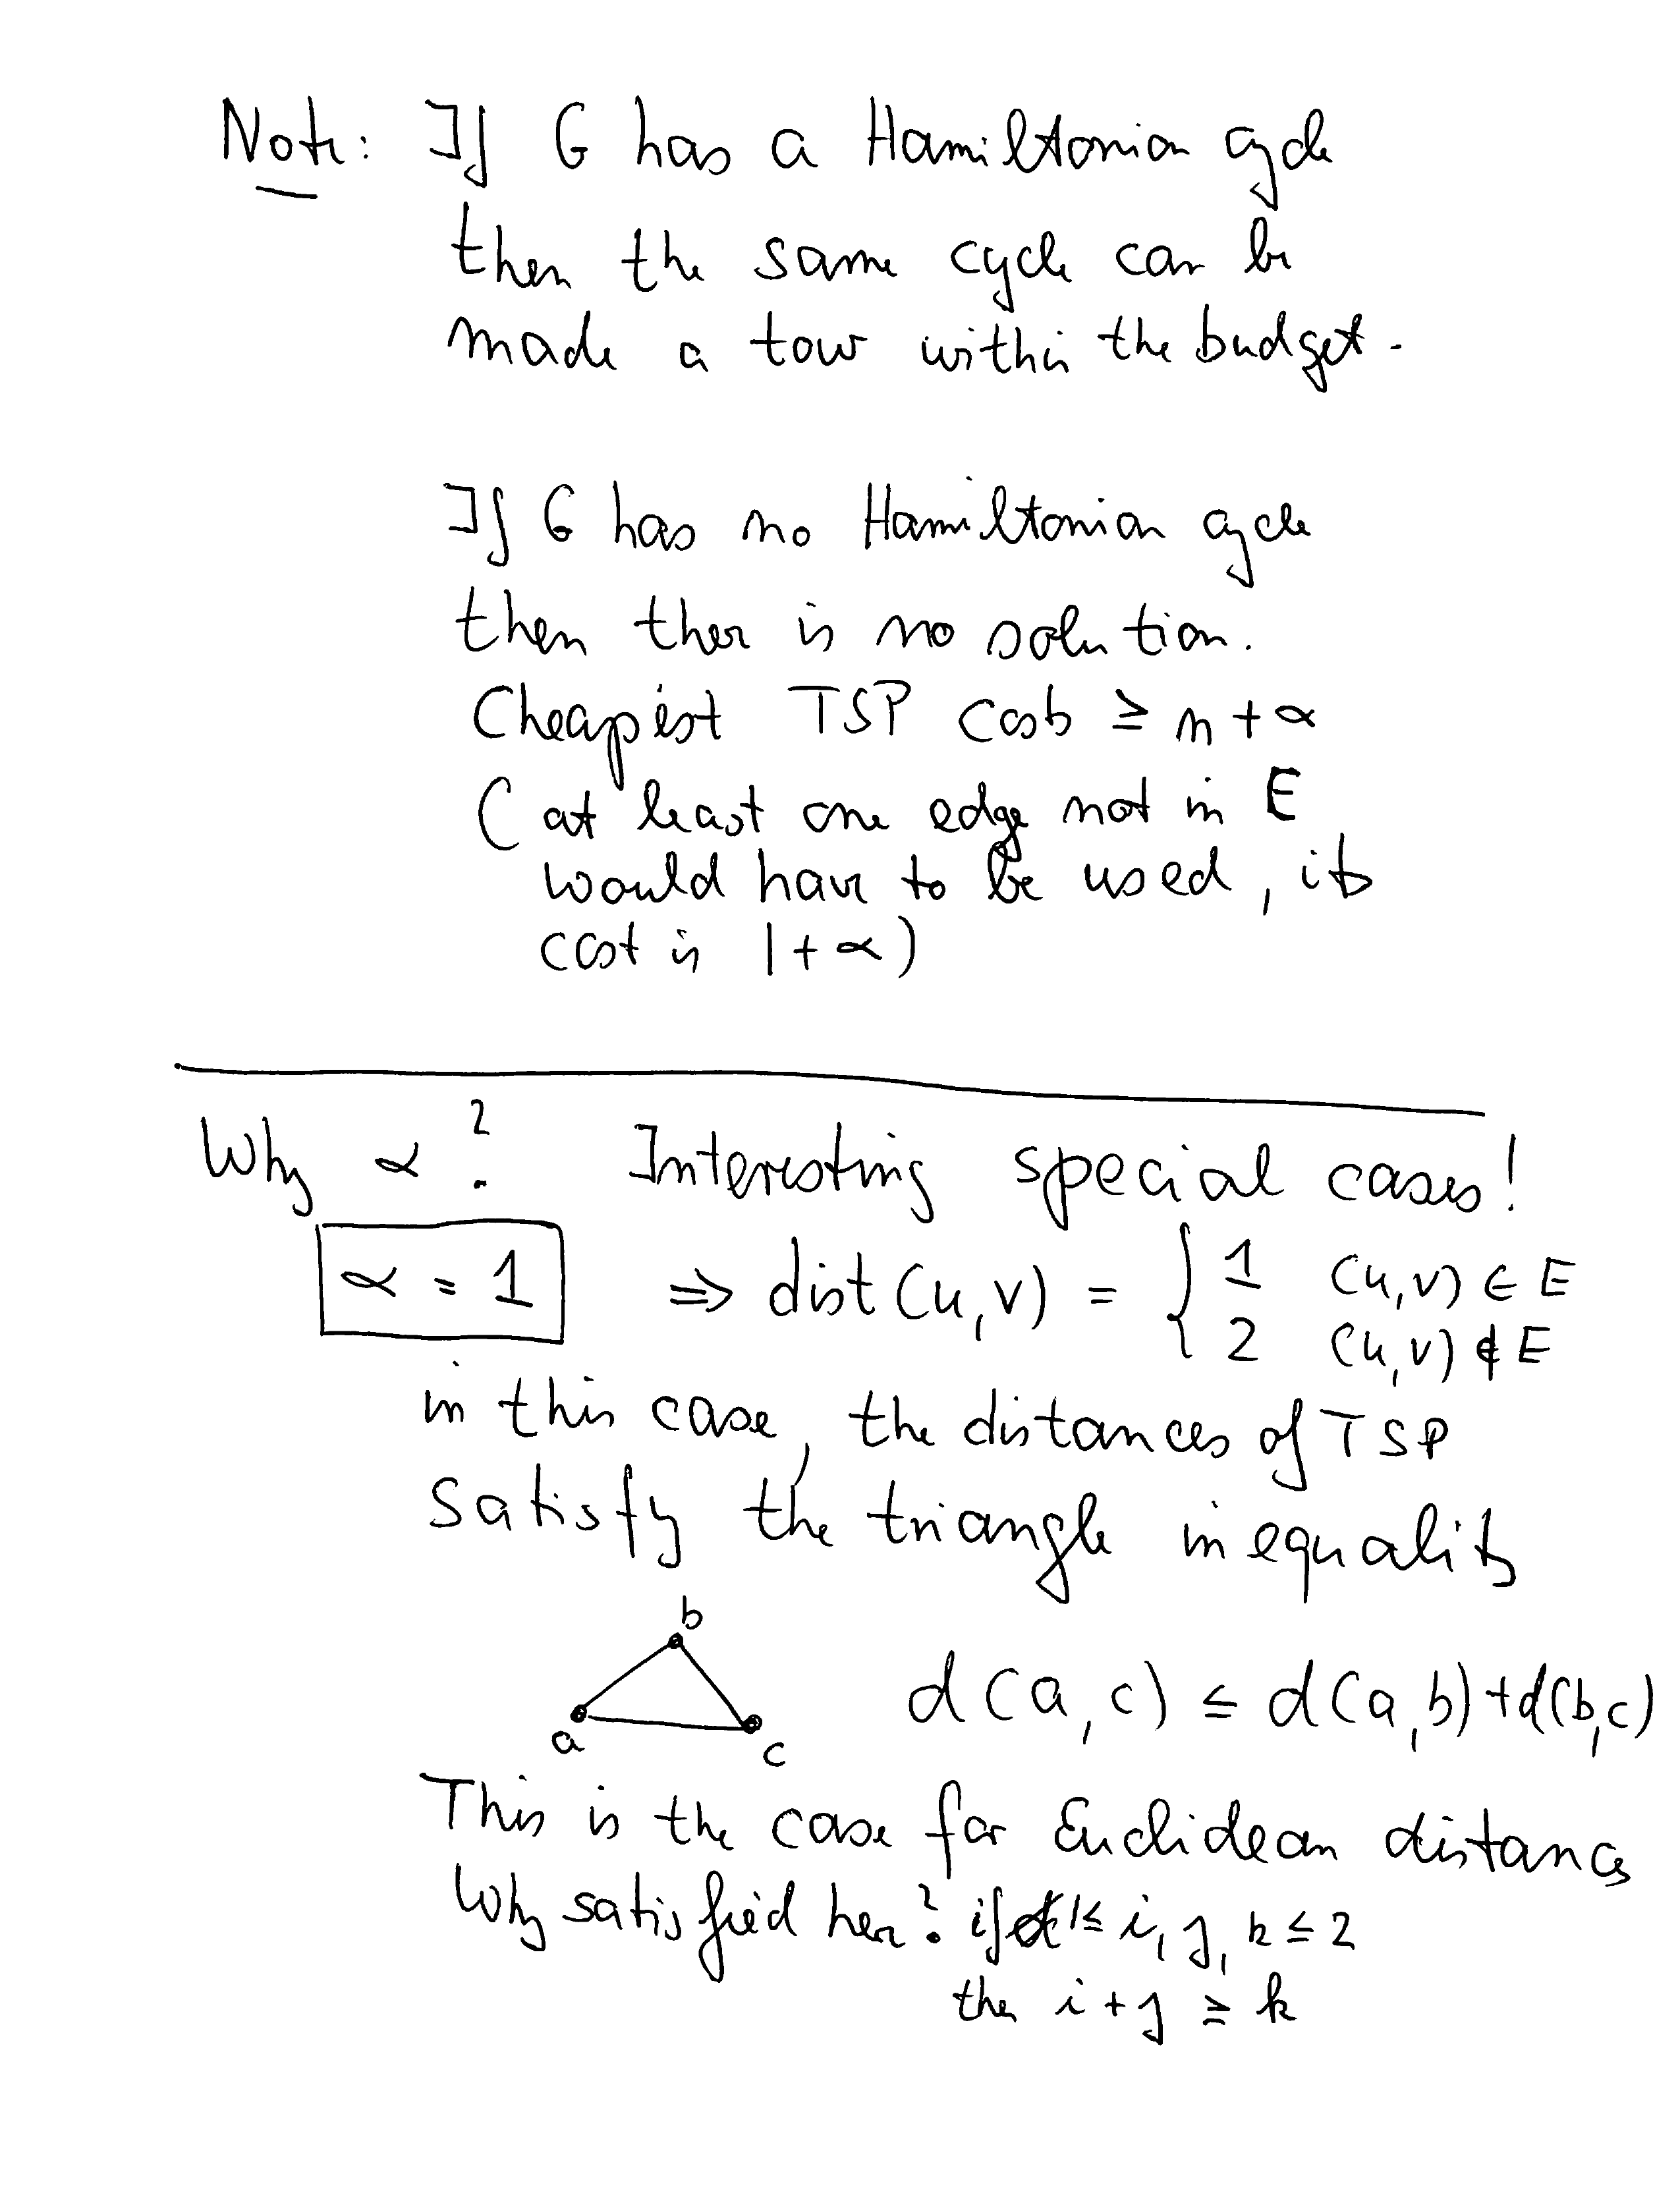 Note: If G has a Hamiltonian cycle
then the same cycle can be
made a tour within the budget.
If G has no Hamiltonian cycle
then ther is no solution.
Cheapest TSP costs ≥ n + α
( at least one edge not in E
would have to be used, its
cost is 1 + α)
Why α ? Interesting special cases!
α = 1 ⇒ dist (u, v) = { 1 (u, v) ∈ E
2 (u, v) ∉ E
in this case, the distances of TSP
satisfy the triangle inequality
b
a
c
d(a, c) ≤ d(a, b) + d(b, c)
This is the case for Euclidean distances
Why satisfied here? if 1 ≤ i, j, k ≤ 2
then i + j ≥ k